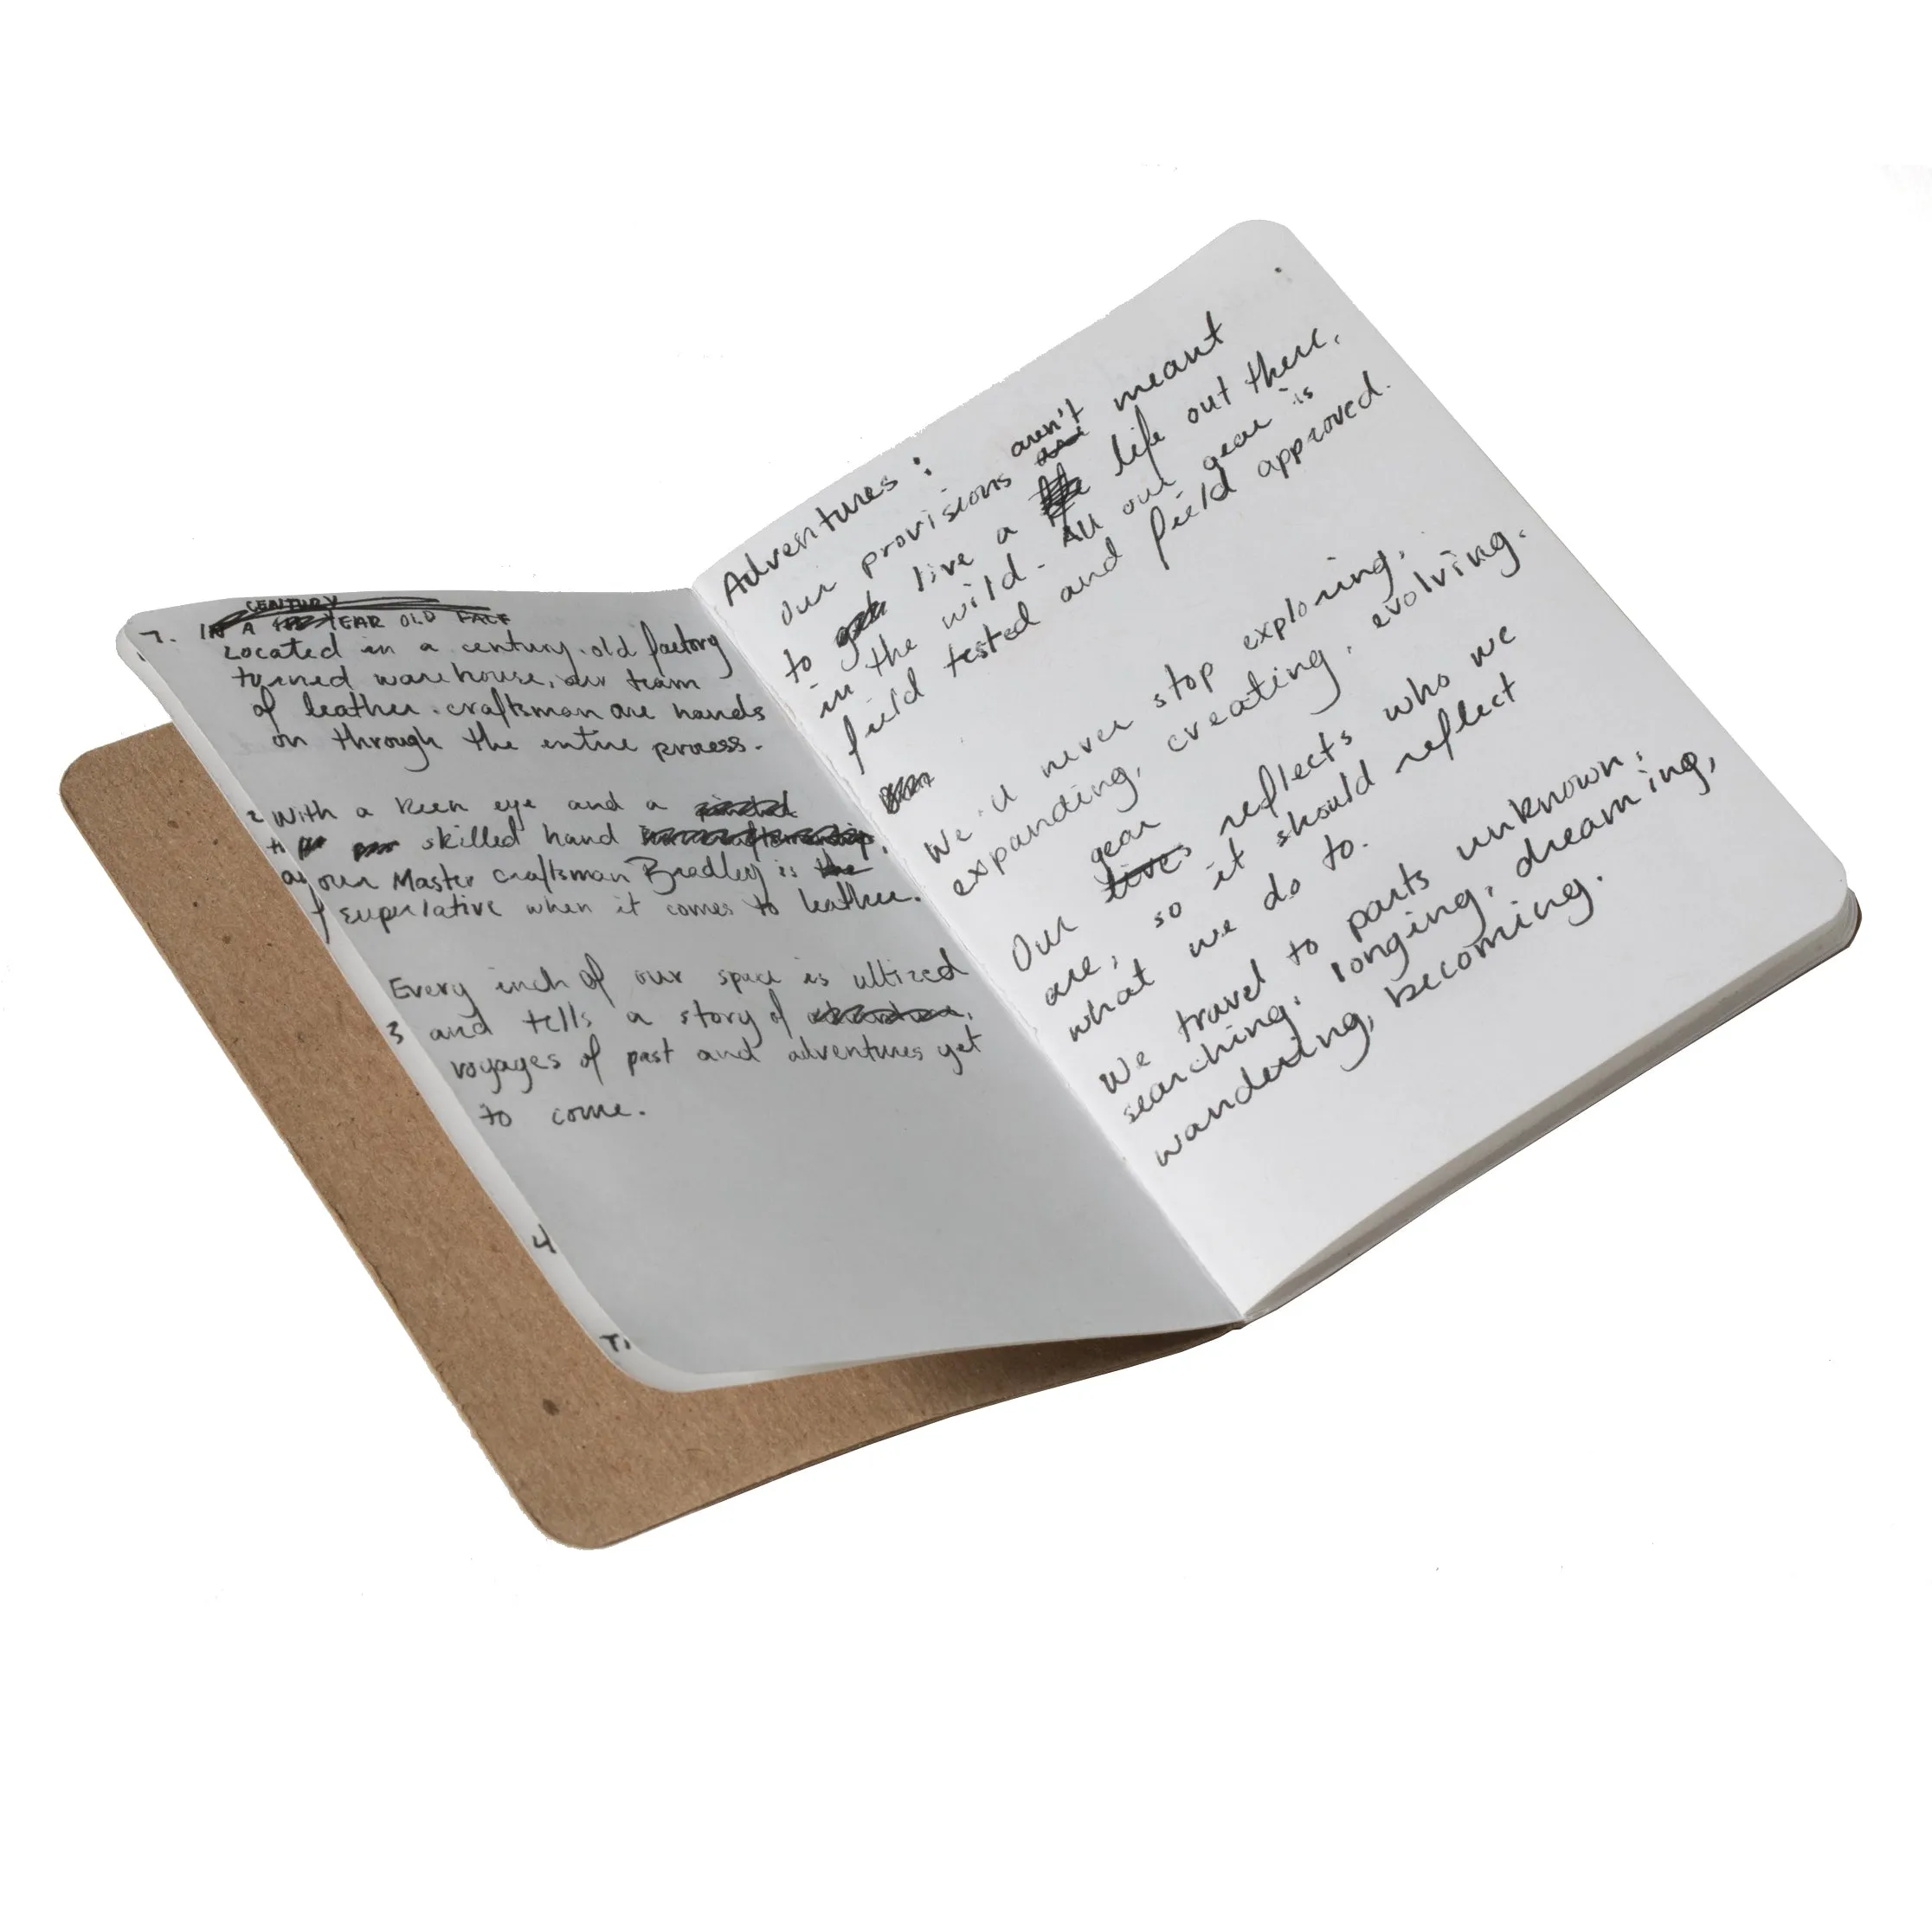 1. IN A YEAR OLD FACT
CENTURY
Located in a century old factory
turned warehouse, our team
of leather craftsman are hands
on through the entire process.
2 With a keen eye and a
skilled hand
our Master craftsman Bradley is the
superlative when it comes to leather.
Every inch of our space is ultized
3 and tells a story of
voyages of past and adventures yet
to come.
4
Adventures:
aren't
Our provisions are meant
to live a life out there,
in the wild. All our gear is
field tested and field approved.
We'll never stop exploring,
expanding, creating, evolving.
gear
Our lives reflects who we
are, so it should reflect
what we do to.
We travel to parts unknown;
searching, longing, dreaming,
wandering, becoming.